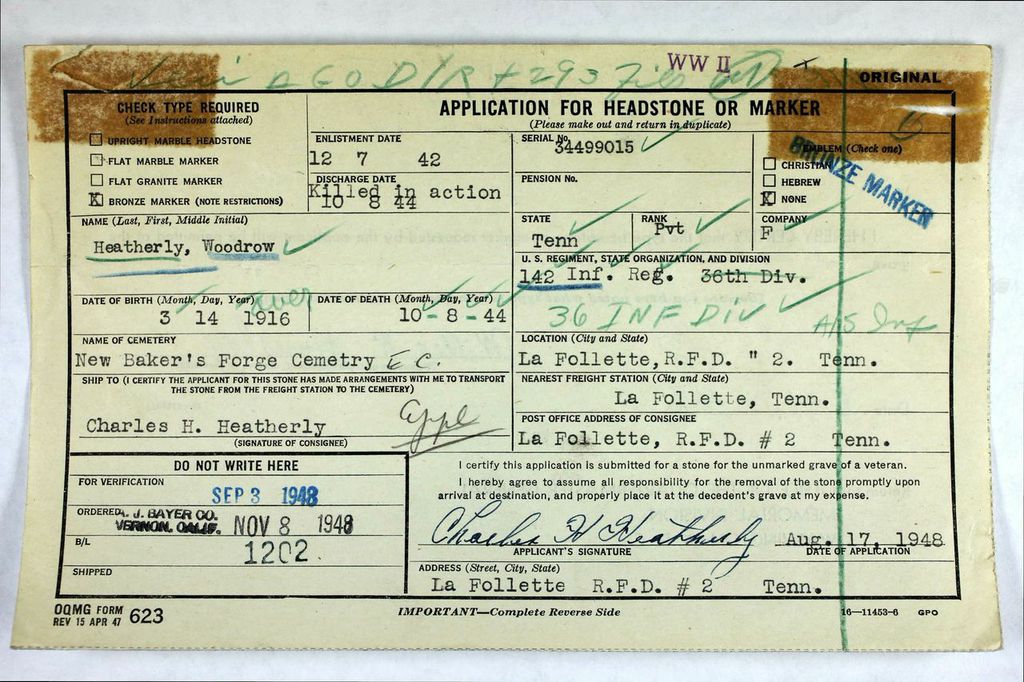 WW II
A G O D/R + 293
ORIGINAL
CHECK TYPE REQUIRED
(See Instructions attached)
UPRIGHT MARBLE HEADSTONE
FLAT MARBLE MARKER
FLAT GRANITE MARKER
X BRONZE MARKER (NOTE RESTRICTIONS)
APPLICATION FOR HEADSTONE OR MARKER
(Please make out and return in duplicate)
ENLISTMENT DATE
12 7 42
DISCHARGE DATE
Killed in action
10 8 44
SERIAL No.
34499015
PENSION No.
EMBLEM (Check one)
CHRISTIAN
HEBREW
X NONE
BRONZE MARKER
NAME (Last, First, Middle Initial)
Heatherly, Woodrow
STATE
Tenn
RANK
Pvt
COMPANY
F
U. S. REGIMENT, STATE ORGANIZATION, AND DIVISION
142 Inf. Reg. 36th Div.
36 INF DIV
A/S Inf
DATE OF BIRTH (Month, Day, Year)
3 14 1916
DATE OF DEATH (Month, Day, Year)
10-8-44
NAME OF CEMETERY
New Baker's Forge Cemetry E C.
LOCATION (City and State)
La Follette,R.F.D. " 2. Tenn.
SHIP TO (I CERTIFY THE APPLICANT FOR THIS STONE HAS MADE ARRANGEMENTS WITH ME TO TRANSPORT
THE STONE FROM THE FREIGHT STATION TO THE CEMETERY)
Charles H. Heatherly
appl
(SIGNATURE OF CONSIGNEE)
NEAREST FREIGHT STATION (City and State)
La Follette, Tenn.
POST OFFICE ADDRESS OF CONSIGNEE
La Follette, R.F.D. # 2 Tenn.
DO NOT WRITE HERE
FOR VERIFICATION
SEP 3 1948
ORDERED
A. J. BAYER CO.
VERNON, CALIF.
NOV 8 1948
B/L
1202
SHIPPED
I certify this application is submitted for a stone for the unmarked grave of a veteran.
I hereby agree to assume all responsibility for the removal of the stone promptly upon
arrival at destination, and properly place it at the decedent's grave at my expense.
Charles H Heatherly Aug. 17, 1948
APPLICANT'S SIGNATURE DATE OF APPLICATION
ADDRESS (Street, City, State)
La Follette R.F.D. # 2 Tenn.
OQMG FORM
REV 15 APR 47 623
IMPORTANT—Complete Reverse Side
16—11453-6 GPO